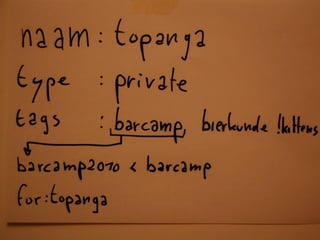 naam: topanga
type : private
tags : barcamp, bierkunde !kittens
barcamp2010 < barcamp
for:topanga